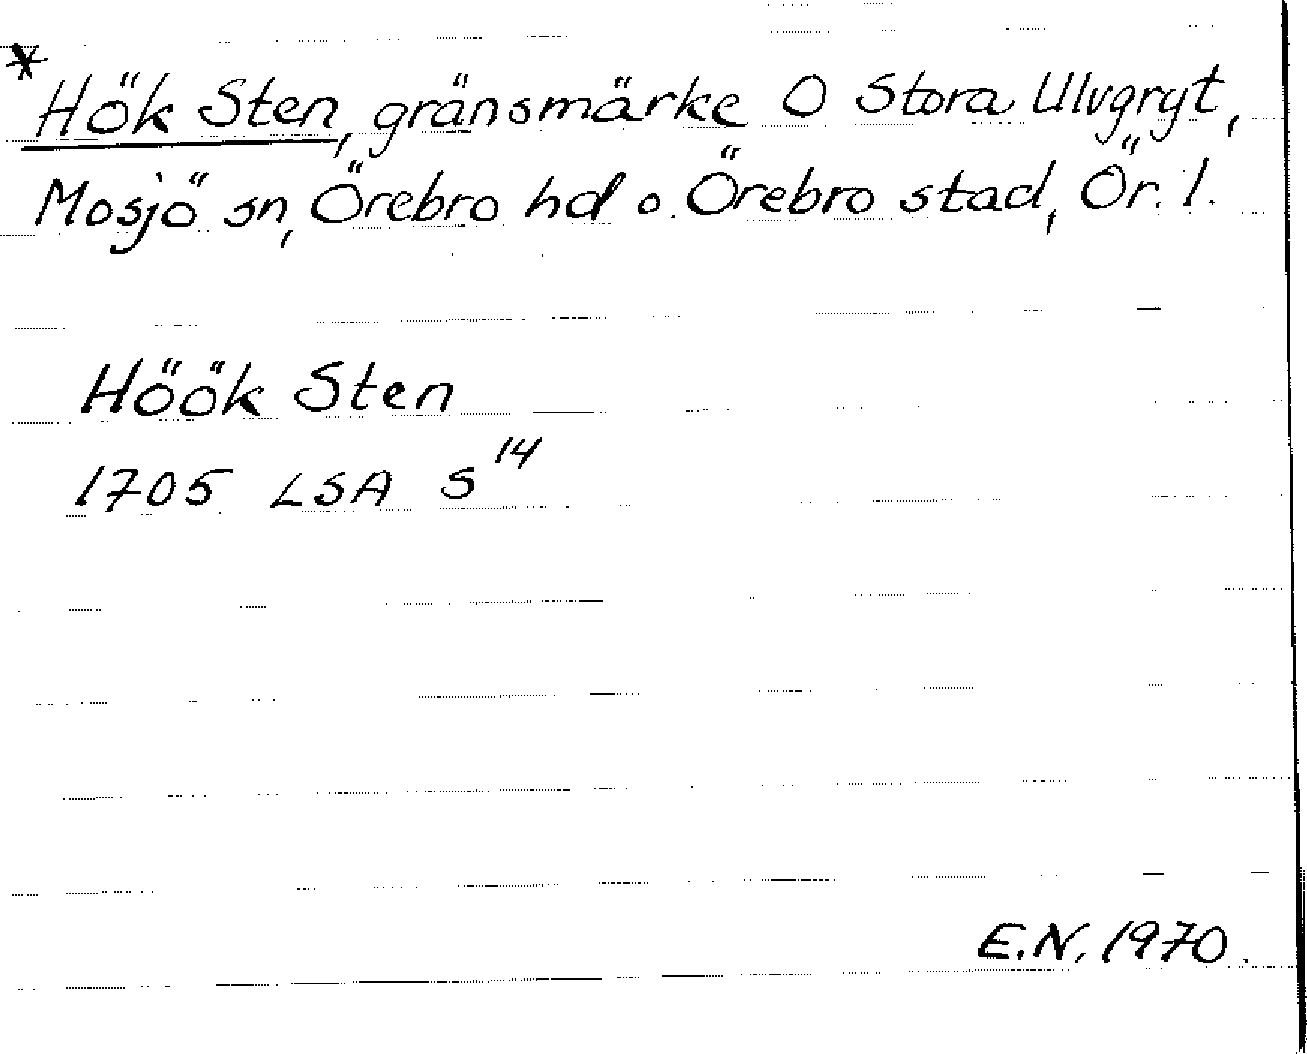 *Hök Sten, gränsmärke O Stora Ulvgryt,
Mosjö sn, Örebro hd o. Örebro stad, Ör. l.
Höök Sten
1705 LSA S¹⁴
E.N. 1970.